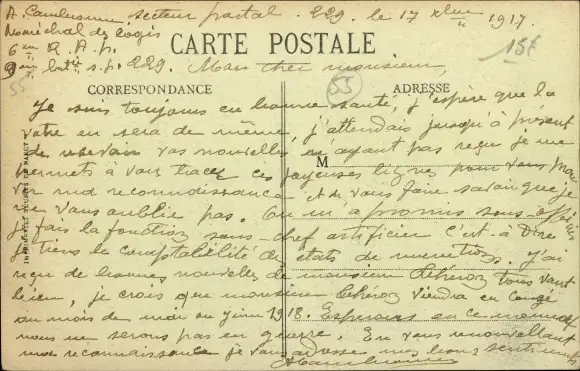 A. secteur postal. 229. le 17 xbre 1917.
Maréchal des logis
6em R. A. p.
9em battie s. p. 229. Mon cher monsieur,
CARTE POSTALE
15f
55
55
CORRESPONDANCE
ADRESSE
M
Je suis toujours en bonne santé, j'espère que la
votre en sera de même, j'attendais jusqu'à présent
de recevoir vos nouvelles, n'ayant pas reçu je me
permets à vous tracer ces joyeuses lignes pour vous
ma reconnaissance et de vous faire savoir que je
ne vous oublie pas. On m'a promus sous-officier
je fais la fonction sous-chef artificier c'est-à-dire
je tiens la comptabilité des états de munitions. J'ai
reçu de bonnes nouvelles de monsieur tous vont
bien, je crois que monsieur viendra en congé
au mois de mai ou juin 1918. Espérons en ce moment
nous ne serons pas en guerre. En vous renouvellant
ma reconnaissance je vous adresse mes bons sentiments